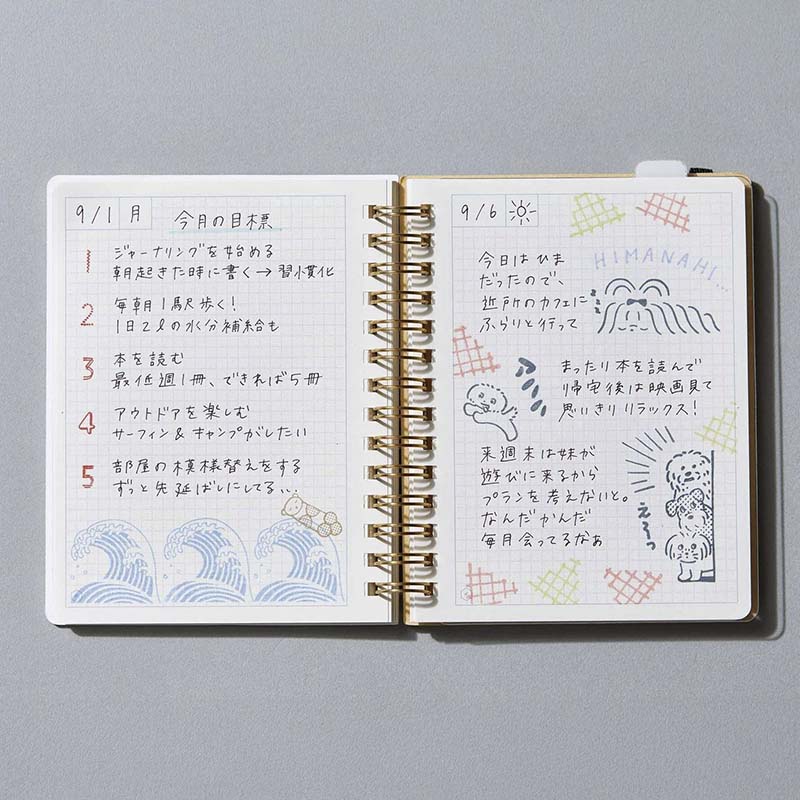 9/1 月 今月の目標
1 ジャーナリングを始める
朝起きた時に書く→習慣化
2 毎朝1駅歩く!
1日2ℓの水分補給も
3 本を読む
最低週1冊、できれば5冊
4 アウトドアを楽しむ
サーフィン&キャンプがしたい
5 部屋の模様替えをする
ずっと先延ばしにしてる...
9/6
HIMANAHI...
今日はひま
だったので、
近所のカフェに
ふらりと行って
まったり本を読んで
帰宅後は映画見て
思いきりリラックス!
来週末は妹が
遊びに来るから
プランを考えないと。
なんだかんだ
毎月会ってるなぁ
えろっ